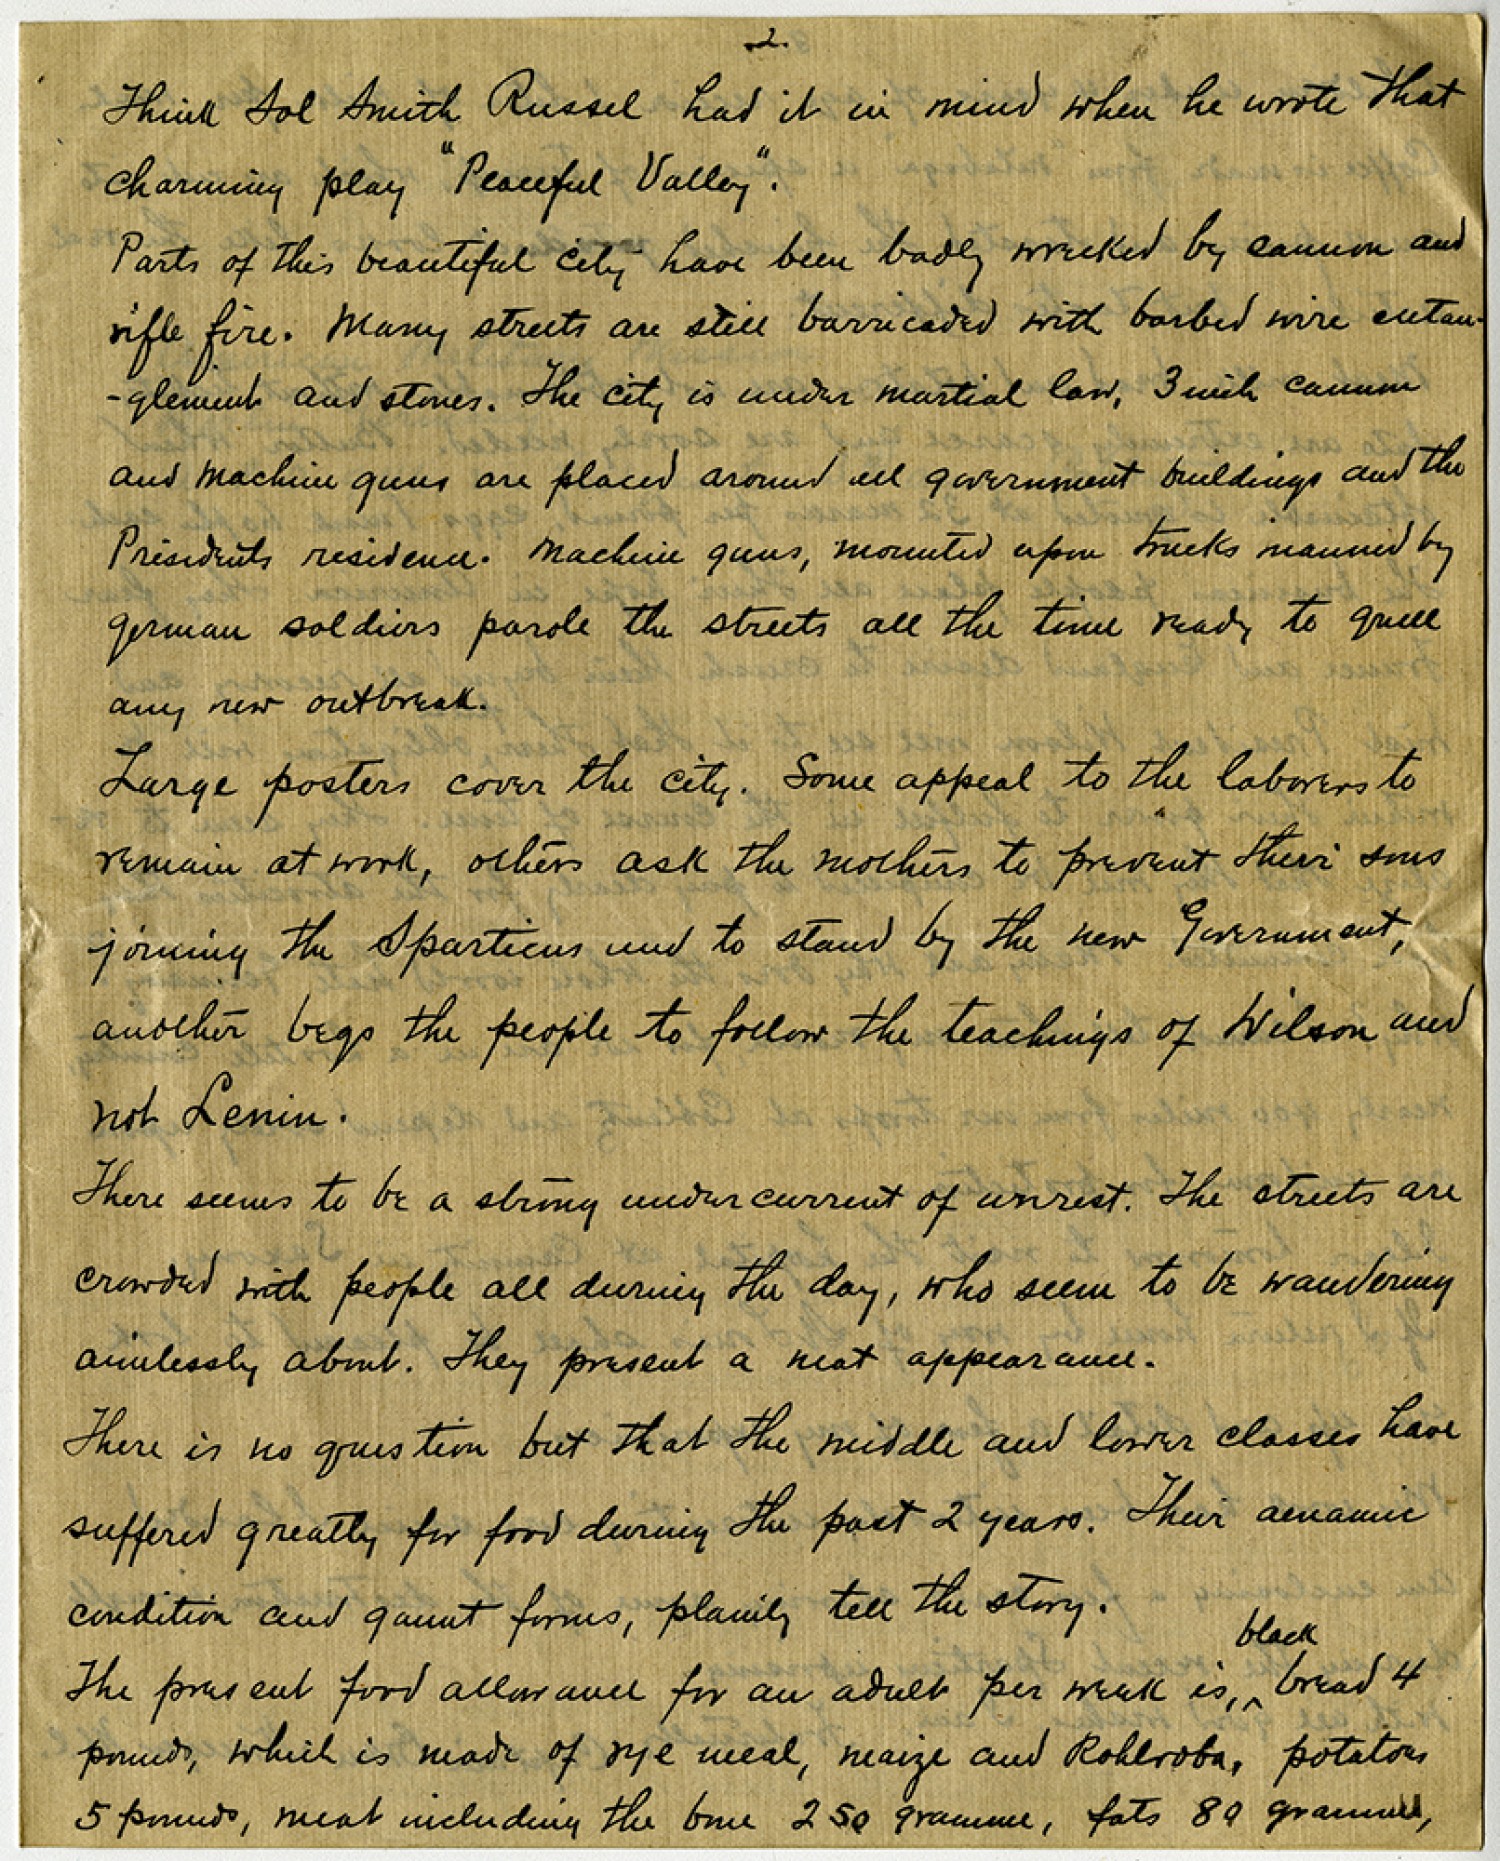 2.
think Sol Smith Russel had it in mind when he wrote that
charming play "Peaceful Valley".
Parts of this beautiful city have been badly wrecked by cannon and
rifle fire. Many streets are still barricaded with barbed wire entan-
-glement and stones. The city is under martial law, 3 inch cannon
and machine guns are placed around all government buildings and the
Presidents residence. Machine guns, mounted upon trucks manned by
german soldiers parole the streets all the time ready to quell
any new outbreak.
Large posters cover the city. Some appeal to the laborers to
remain at work, others ask the mothers to prevent their sons
joining the Sparticus and to stand by the new Government,
another begs the people to follow the teachings of Wilson and
not Lenin.
There seems to be a strong undercurrent of unrest. The streets are
crowded with people all during the day, who seem to be wandering
aimlessly about. They present a neat appearance.
There is no question but that the middle and lower classes have
suffered greatly for food during the past 2 years. Their aenamic
condition and gaunt forms, plainly tell the story.
The present food allowance for an adult per week is, ^ black bread 4
pounds, which is made of rye meal, maize and Kohlroba, potatoes
5 pounds, meat including the bone 250 gramme, fats 80 gramme,